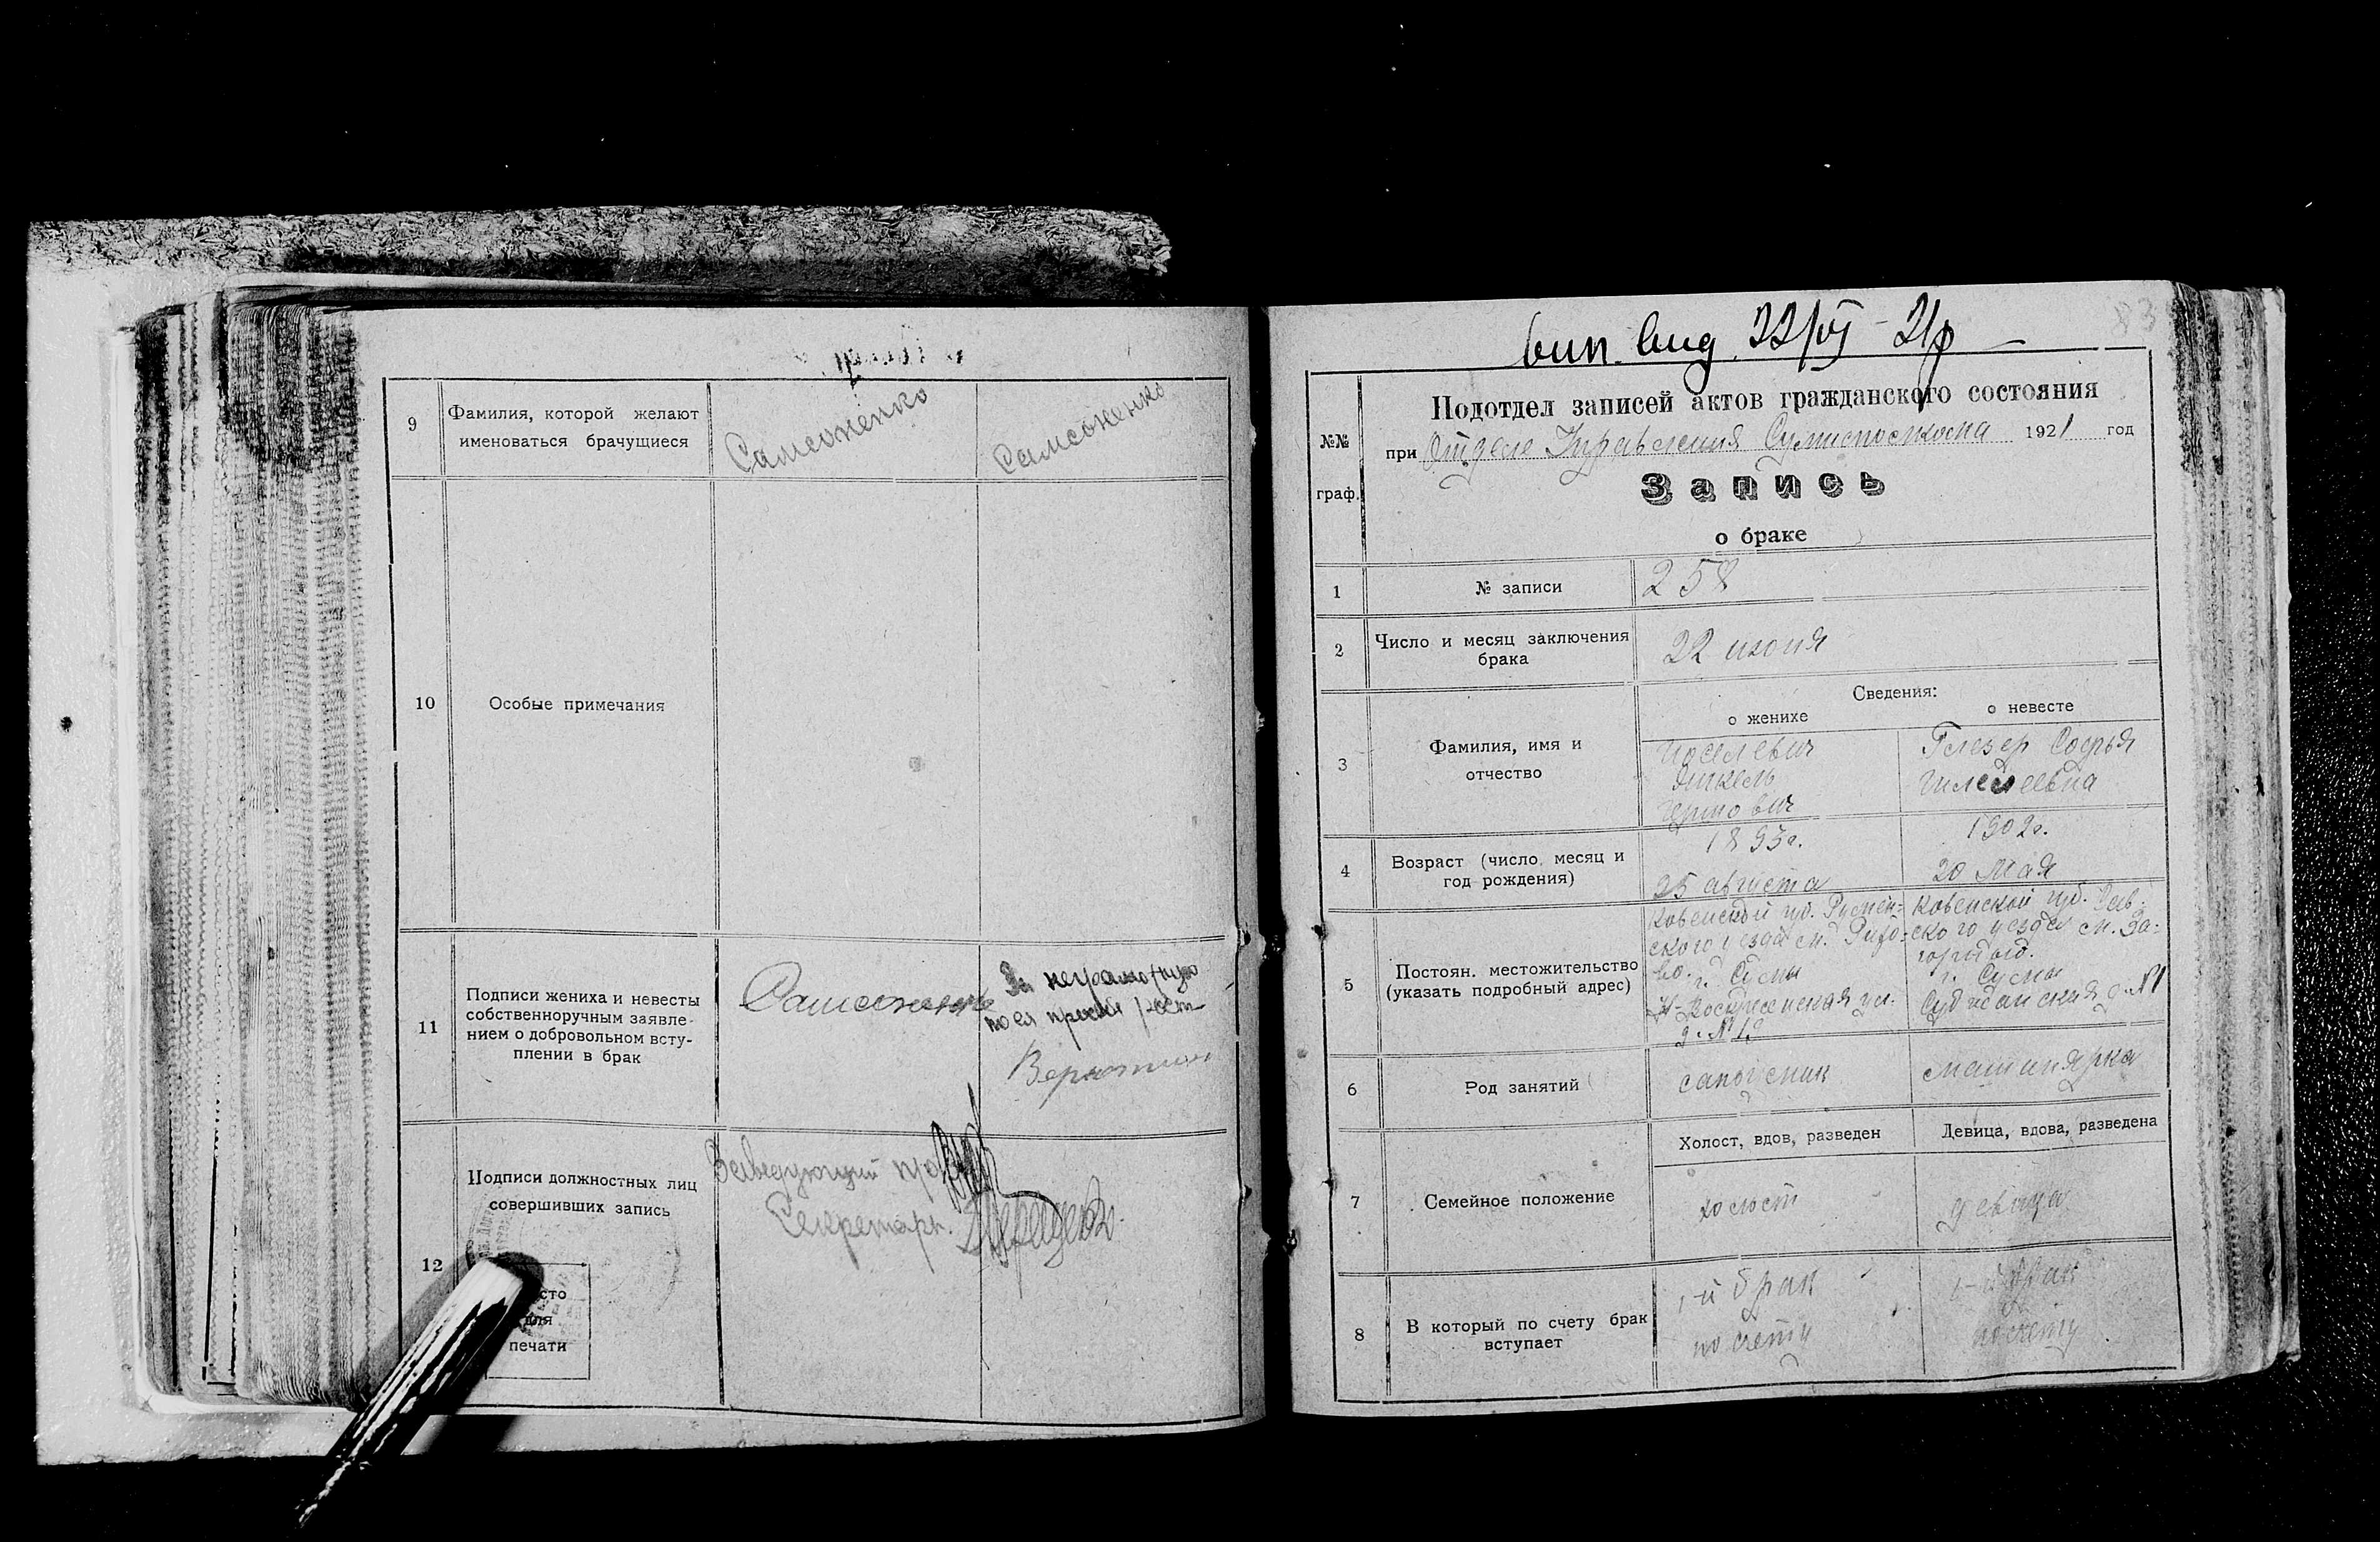 9
Фамилия, которой желают
именоваться брачущиеся
Самсоненко
Самсоненко
10
Особые примечания
11
Подписи жениха и невесты
собственноручным заявле-
нием о добровольном всту-
плении в брак
Самсоненко
За неграмотную
по ея просьбе
12
Подписи должностных лиц
совершивших запись
Заведующий
Секретарь
для
печати
83
вып. выд. 22/VI-21г
№№
граф.
Подотдел записей актов гражданского состояния
при Отделе Управления 1921 год
Запись
о браке
1
№ записи
258
2
Число и месяц заключения
брака
22 июня
Сведения:
о женихе
о невесте
3
Фамилия, имя и
отчество
Иоселевич
Янкель
Глезер Софья
4
Возраст (число, месяц и
год рождения)
1893г.
25 августа
1902г.
20 Мая
5
Постоян. местожительство
(указать подробный адрес)
Ковенской губ.
ского уезда м.
г. Сумы
ул.
Ковенской губ.
ского уезда м.
г. Сумы
Суджанская д. №1
6
Род занятий
сапожник
7
Семейное положение
Холост, вдов, разведен
Девица, вдова, разведена
холост
девица
8
В который по счету брак
вступает
1-й брак
по счету
1-й брак
по счету